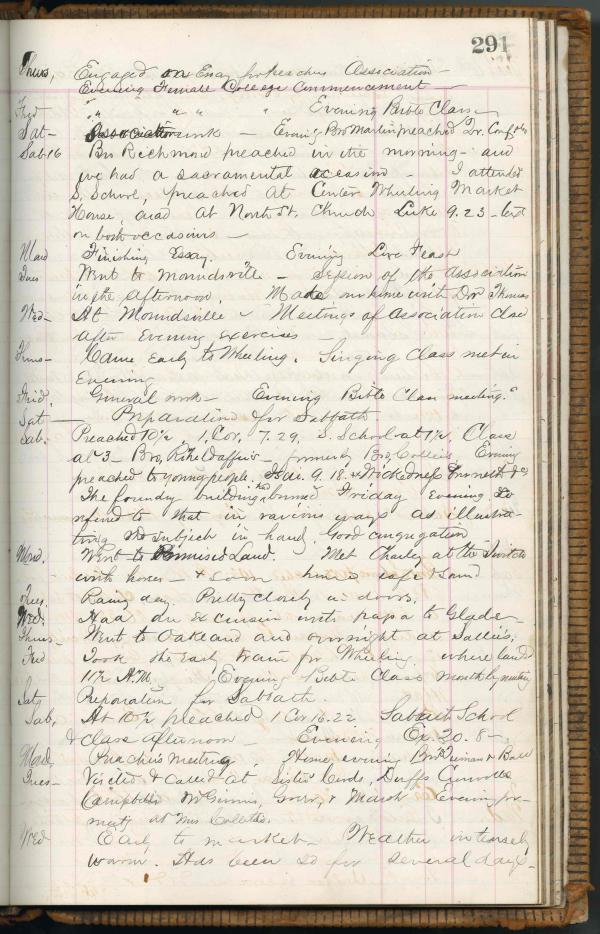 291
Thurs, Engaged on Essay for Association –
Evening Female College Commencement –
Frid " " " " Evening Bible Class
Sat – work – Evening Bro Martin preached Qr. Conf
Sab 16 Bro Richmond preached in the morning – and
we had a sacramental occasion – I attended
S. School, preached at Center Wheeling Market
House, and at North St. Church Luke 9.23 – text
on both occasions –
Mond Finishing Essay. Evening Love Feast
Tues Went to Moundsville – session of the association
in the afternoon. Made visit Dr Thomas
Wed – At Moundsville – Meetings of Association closed
after Evening exercises –
Thurs – Came Early to Wheeling. Singing Class met in
Evening
Frid. General work – Evening Bible Class meeting.
Sat – Preparation for Sabbath
Sab. Preached 10½, 1, Cor, 7.29, S. School at 1½, Class
at 3 – Bro, formerly Bro, Collins, Evening
preached to young people. Isai. 9.18. Wickedness burneth &c
The foundry building burned Friday evening. Re-
ferred to that in various ways as illustra-
ting the subject in hand. Good congregation
Mond. Went to Promised Land. Met Charley at the Switch
with horses – & soon home safe & sound
Tues. Rainy day. Pretty closely in doors.
Wed. Had an excursion with papa to Glades –
Thurs – Went to Oakland and overnight at Sallies.
Frid Took the early train for Wheeling. where land
11½ A.M. Evening Bible Class monthly meeting
Sat, Preparation for Sabbath.
Sab, At 10½ preached 1 Cor 16.22. Sabbath School
& Class afternoon – Evening Ex. 20.8 –
Mond, Preachers meeting, Home evening Bro & Ball
Tues – Visited & called at Sister Duffs
Campbells McGinnis, & Marsh Evening for-
mally at Mrs
Wed Early to market – Weather intensely
warm. Has been so for several days –